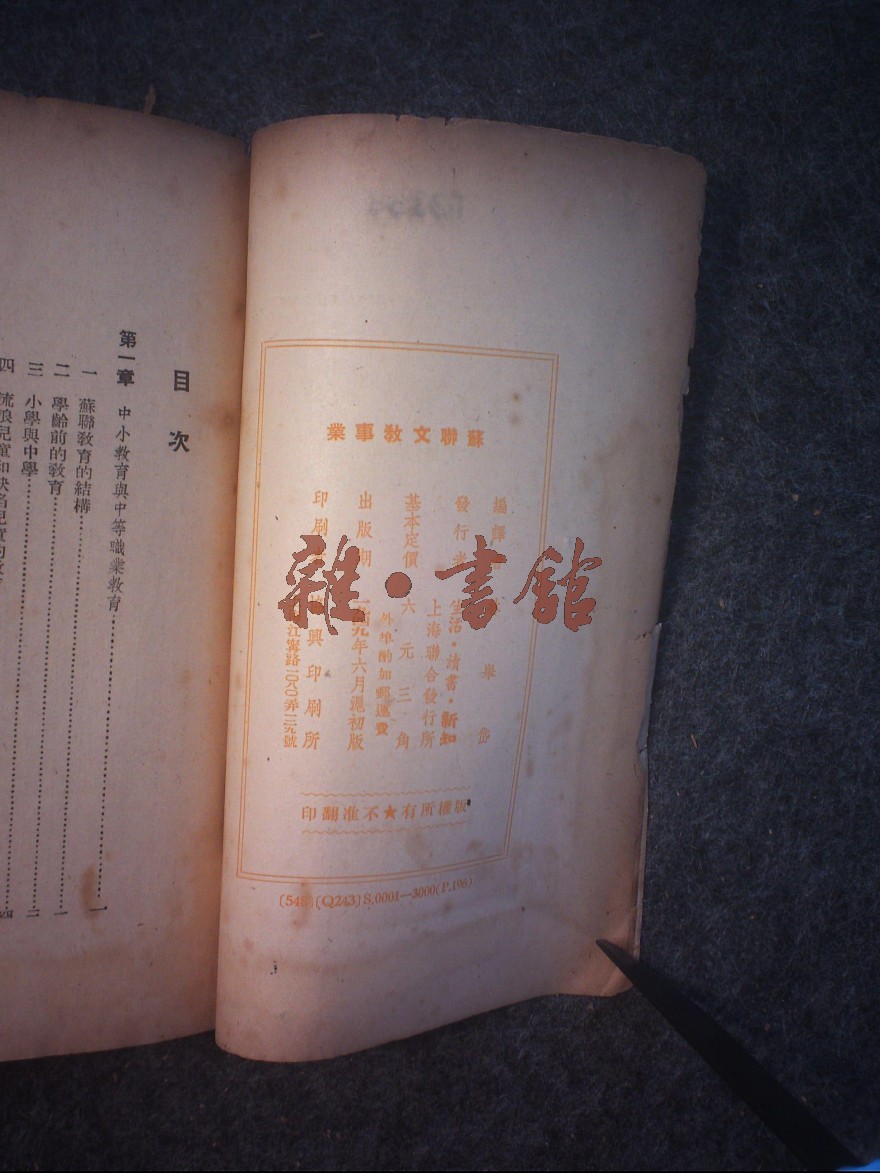 蘇聯文教事業
編譯
岳
發行者
生活・讀書・新知
上海聯合發行所
基本定價
六元三角
外埠酌加郵運費
出版
九年六月滬初版
印刷
興印刷所
江寧路一八〇弄一二九號
版權所有★不准翻印
(Q243)S.0001—3000(P.196)
雜・書館
目次
第一章 中小教育與中等職業教育 一
一 蘇聯教育的結構 一
二 學齡前的教育 一
三 小學與中學 三
四 流浪兒童和缺陷兒童的教